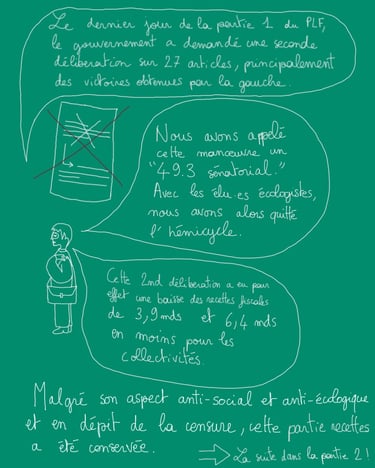 Le dernier jour de la partie 1 du PLF,
le gouvernement a demandé une seconde
délibération sur 27 articles, principalement
des victoires obtenues par la gauche.
Nous avons appelé
cette manœuvre un
"49.3 sénatorial."
Avec les élu·es écologistes,
nous avons alors quitté
l'hémicycle.
Cette 2nd délibération a eu pour
effet une baisse des recettes fiscales
de 3,9 mds et 6,4 mds
en moins pour les
collectivités.
Malgré son aspect anti-social et anti-écologique
et en dépit de la censure, cette partie recettes
a été conservée.
La suite dans la partie 2 !